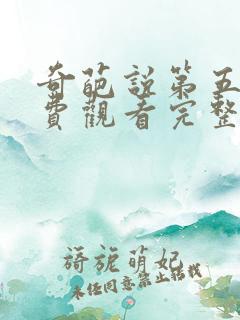 奇葩說第五
費觀看完整
旖旎萌妃
未经同意禁止转载